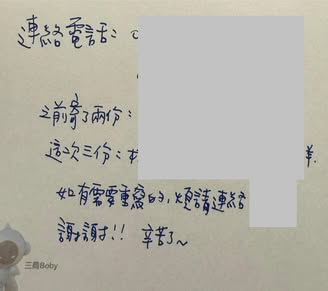 連絡電話：
之前寄了兩份：
這次三份：
如有需要重的，煩請連絡
謝謝!! 辛苦了~
三商Boby